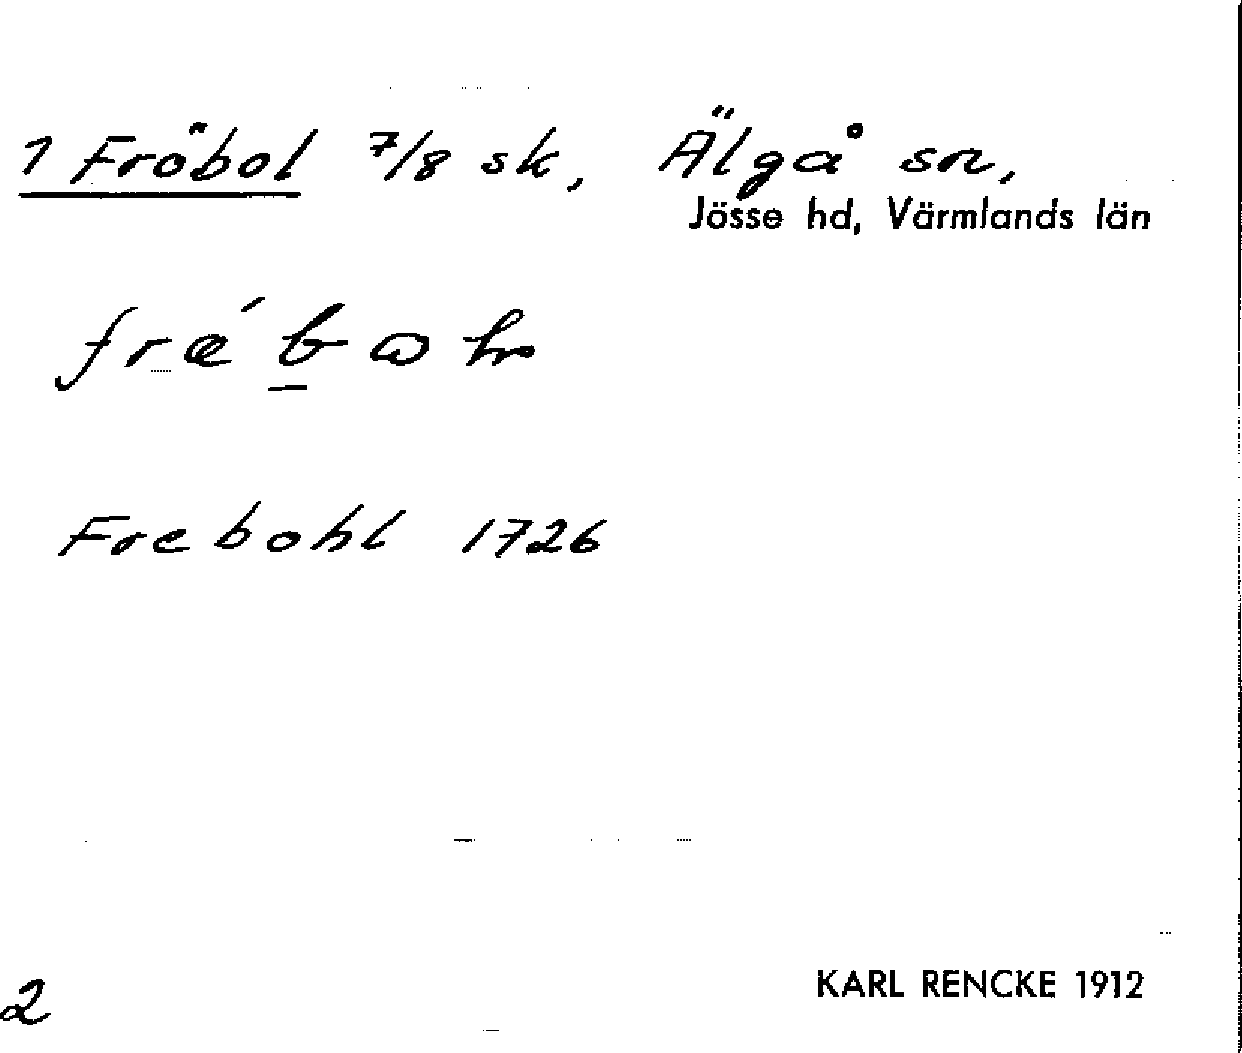 1 Fröbol 7/8 sk, Älgå sn,
Jösse hd, Värmlands län
Frebohl 1726
2
KARL RENCKE 1912